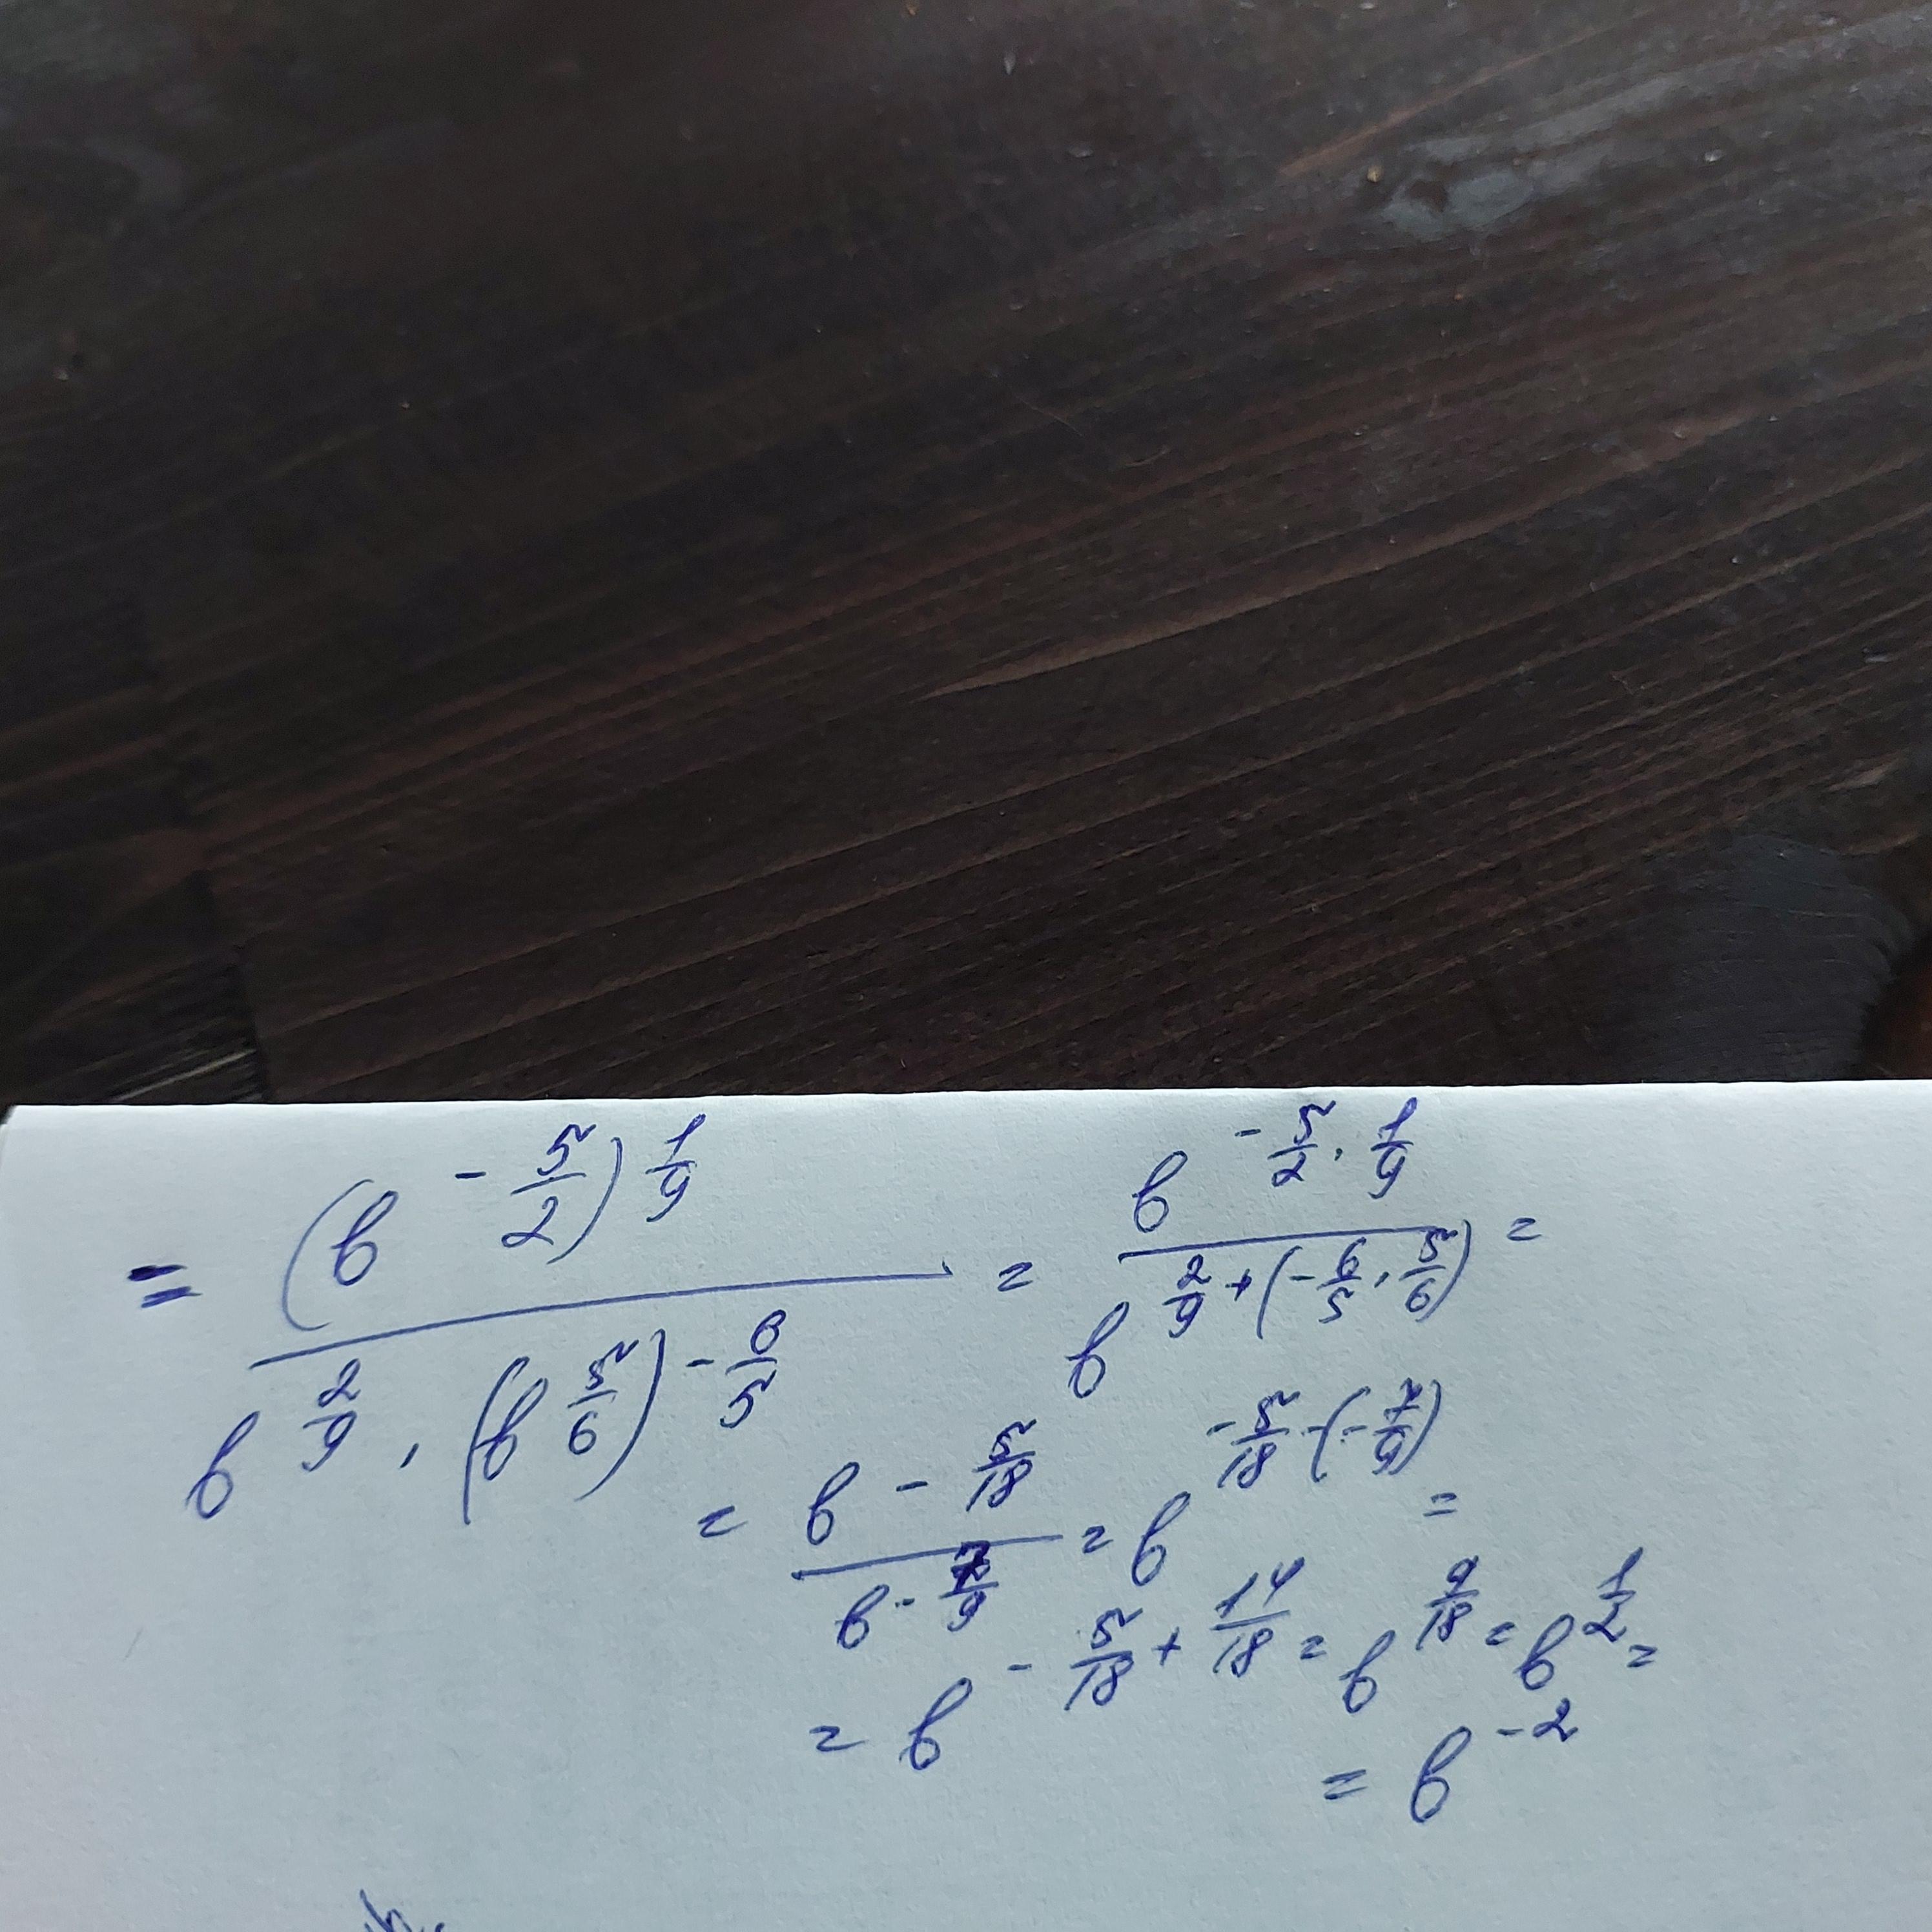 = (b^{-5/2})^{1/9} / (b^{2/9} · (b^{5/6})^{-6/5}) = b^{-5/2 · 1/9} / b^{2/9 + (-6/5 · 5/6)} =
= b^{-5/18} / b^{-7/9} = b^{-5/18 - (-7/9)} =
= b^{-5/18 + 14/18} = b^{9/18} = b^{1/2} =
= b^{-2}